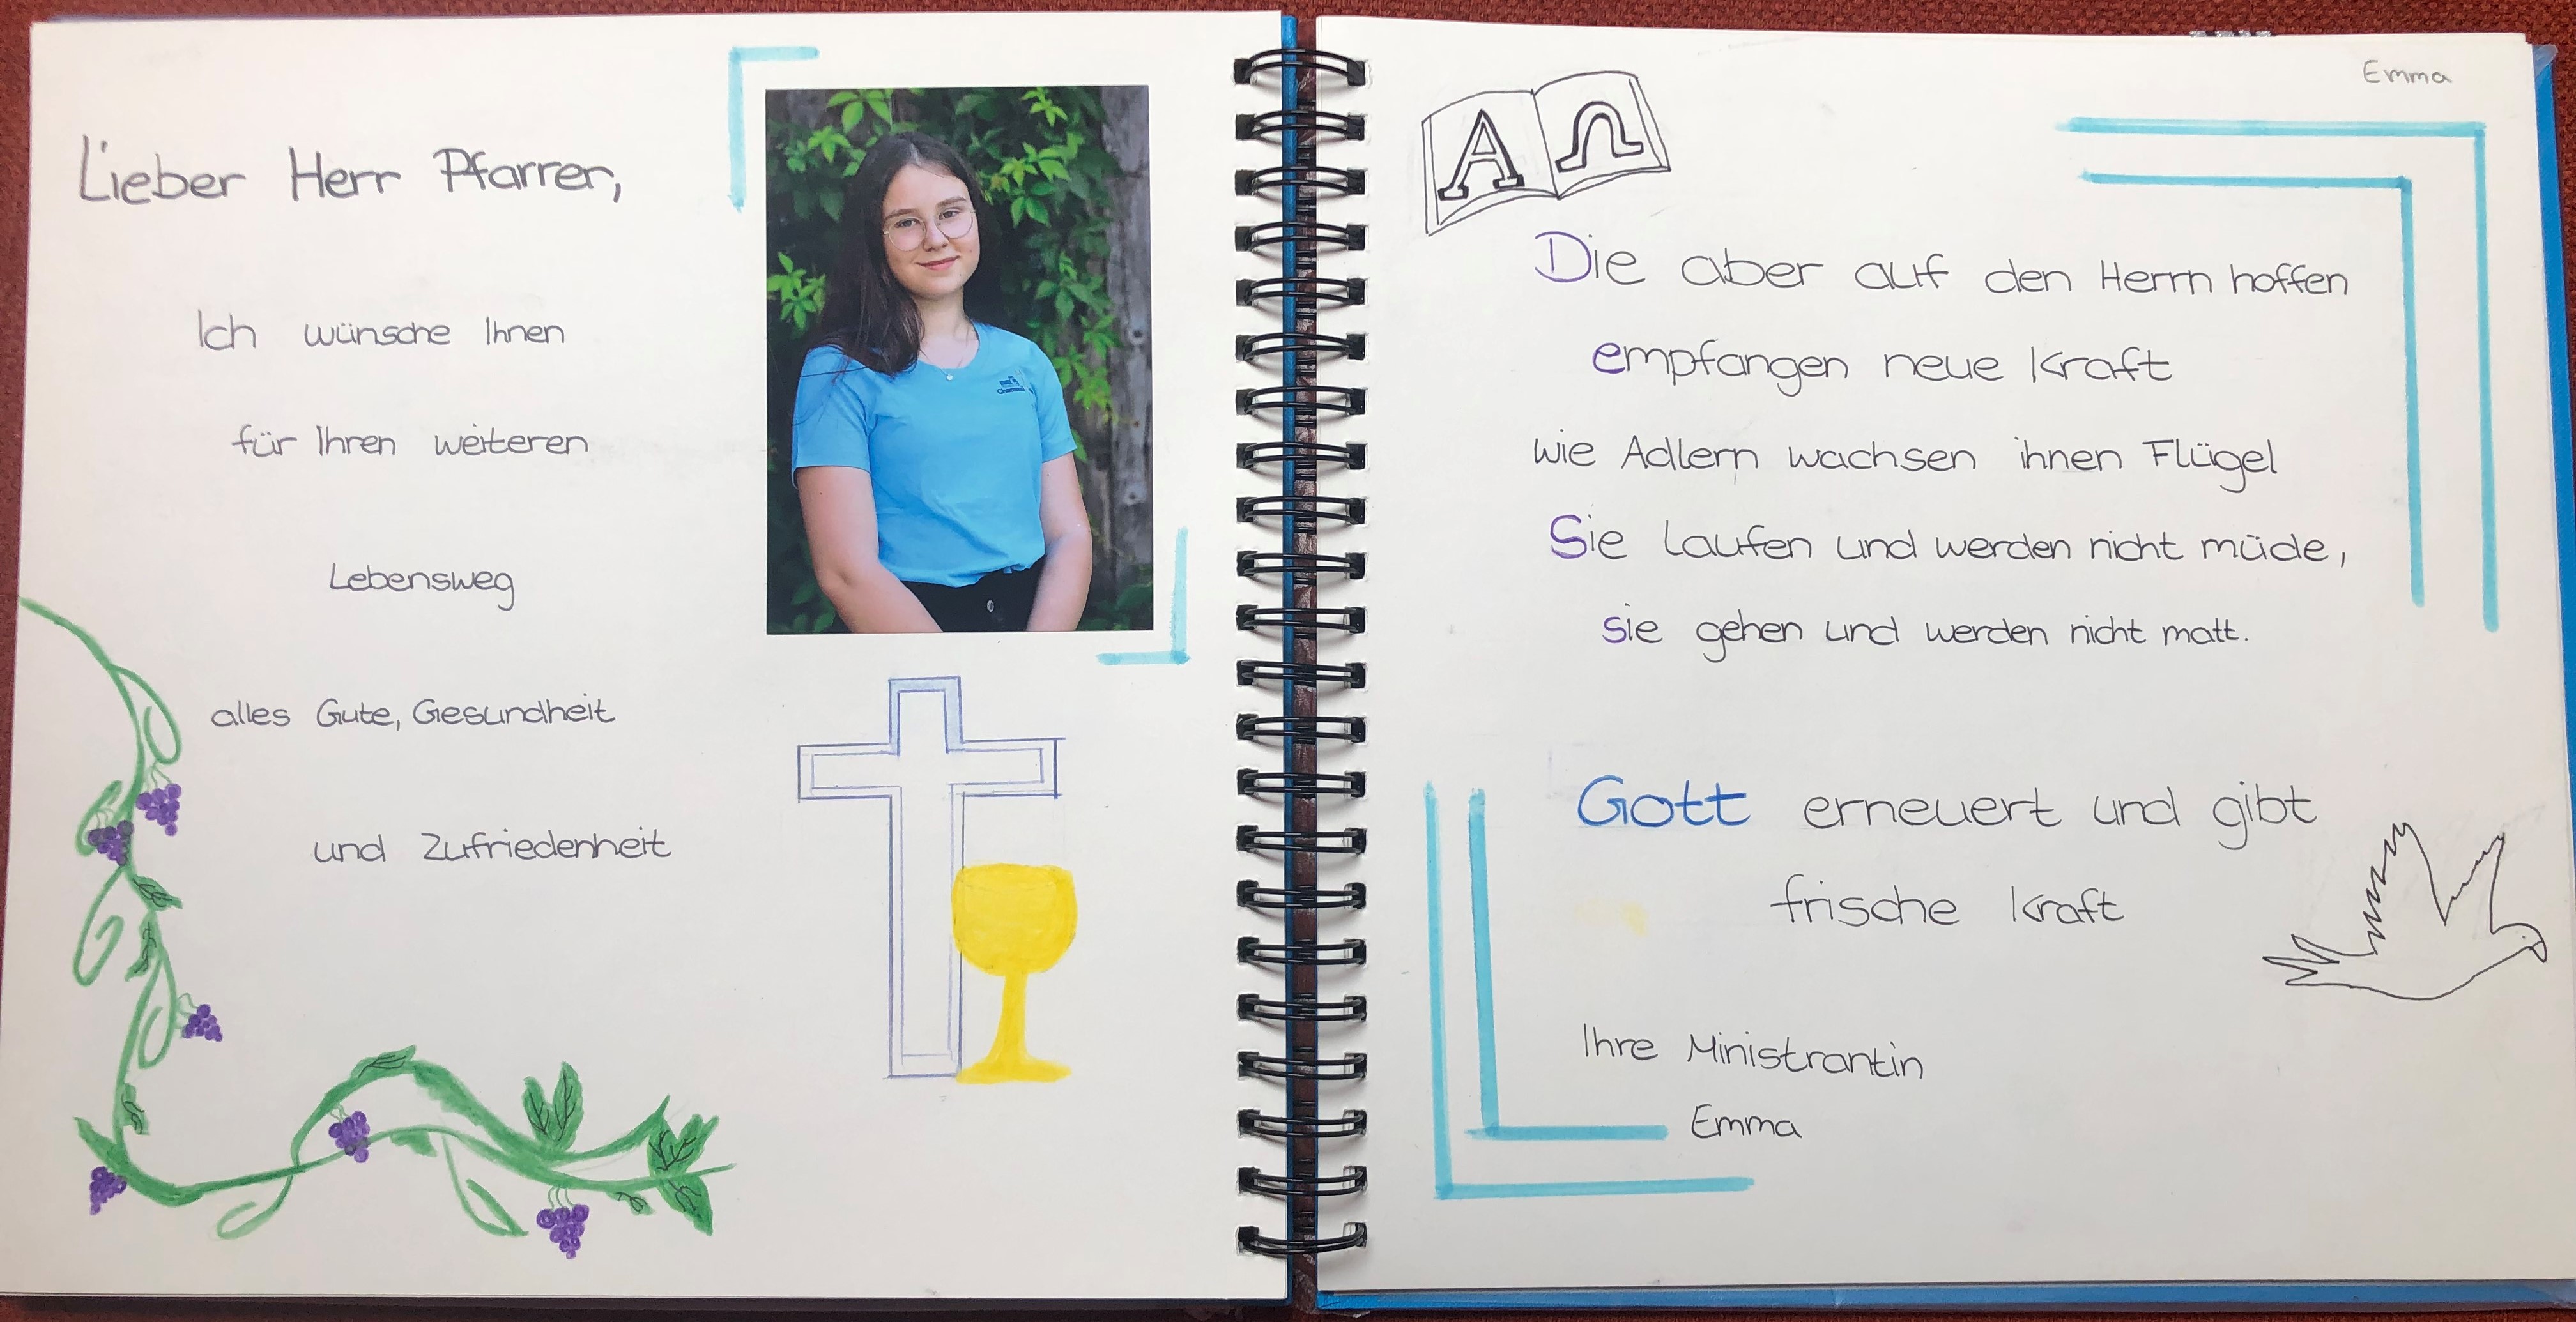 Lieber Herr Pfarrer,
Ich wünsche Ihnen
für Ihren weiteren
Lebensweg
alles Gute, Gesundheit
und Zufriedenheit
Emma
Α Ω
Die aber auf den Herrn hoffen
empfangen neue Kraft
wie Adlern wachsen ihnen Flügel
Sie laufen und werden nicht müde,
sie gehen und werden nicht matt.
Gott erneuert und gibt
frische Kraft
Ihre Ministrantin
Emma